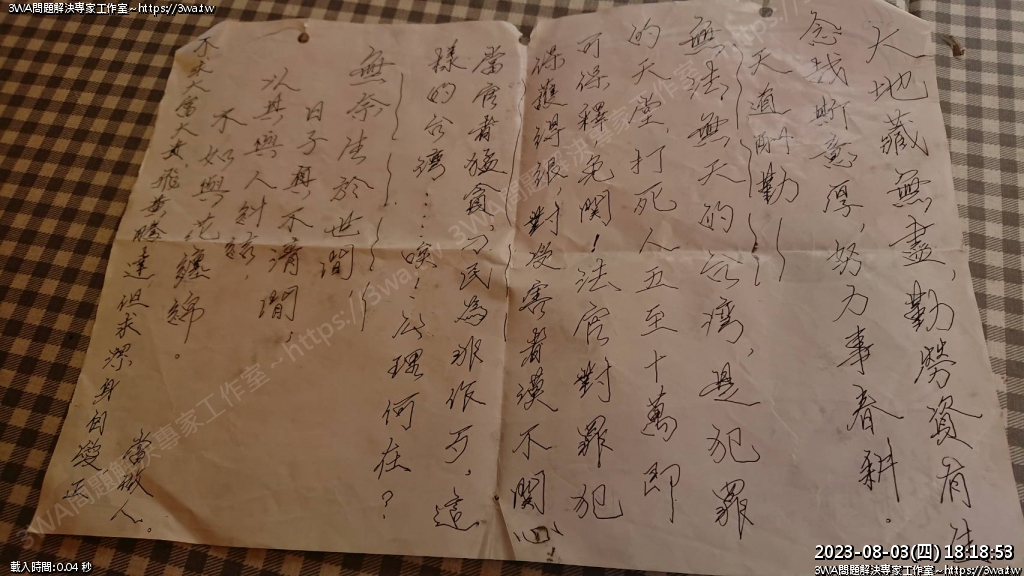 3WA問題解決專家工作室~https://3wa.tw
3WA問題解決專家工作室~https://3wa.tw
大地藏無盡,勤勞資有生
念哉斯意厚,努力事春耕。
天道酬勤
無法無天的台灣,是犯罪
的天堂,打死人五至十萬即
可保釋,免關!法官對罪犯
保護得很,對受害者漠不關心!
當官者猛貪,刁民為非作歹,這
樣的台灣……唉!理何在?
無奈生於世間
日子再不清閒,
以其與人糾纏,
不如與花纏綿。
不求大富大貴飛黃騰達但求潔身自愛正
當做人。
3WA問題解決專家工作室~https://3wa.tw
載入時間:0.04 秒
2023-08-03(四) 18:18:53
3WA問題解決專家工作室~https://3wa.tw